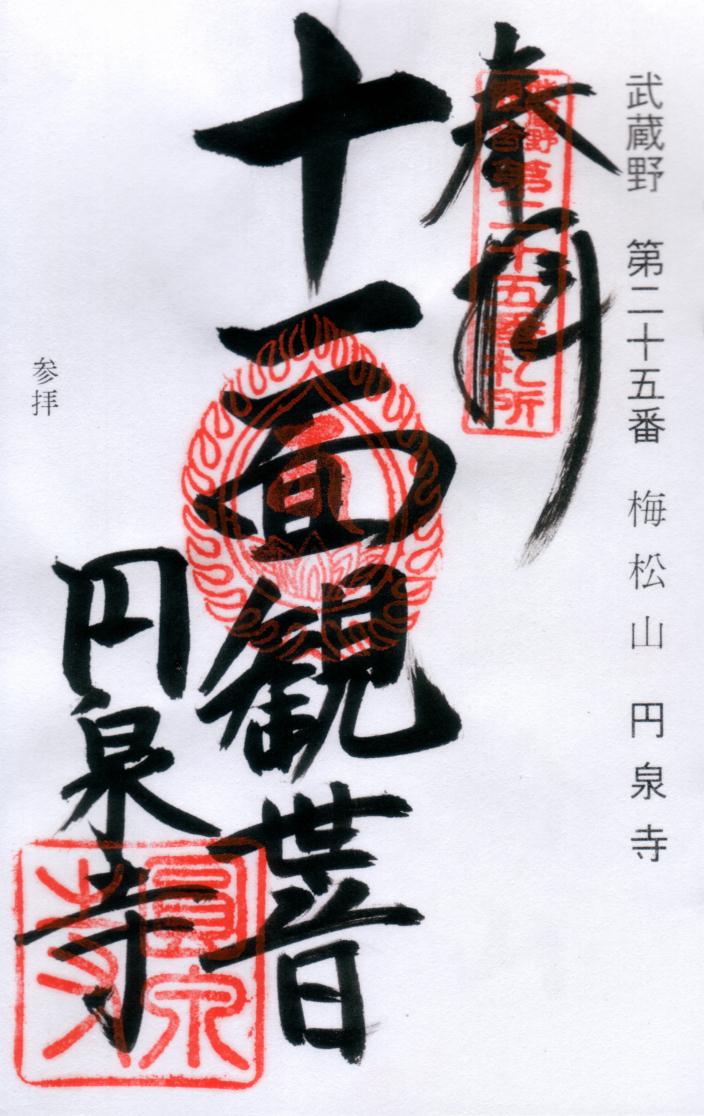 武蔵野 第二十五番 梅松山 円泉寺
奉拝
第二十五番札所
十一面観世音
円泉寺
参拝